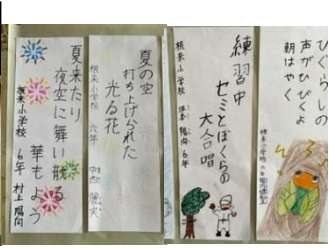 ひぐらしの
声がひびくよ
朝はやく
練習中
セミとぼくらの
大合唱
根来小学校
陽向 6年
夏の空
打ち上げられた
光る花
根来小学校 六年
夏来たり
夜空に舞い散る
華もよう
根来小学校 6年 村上 陽向